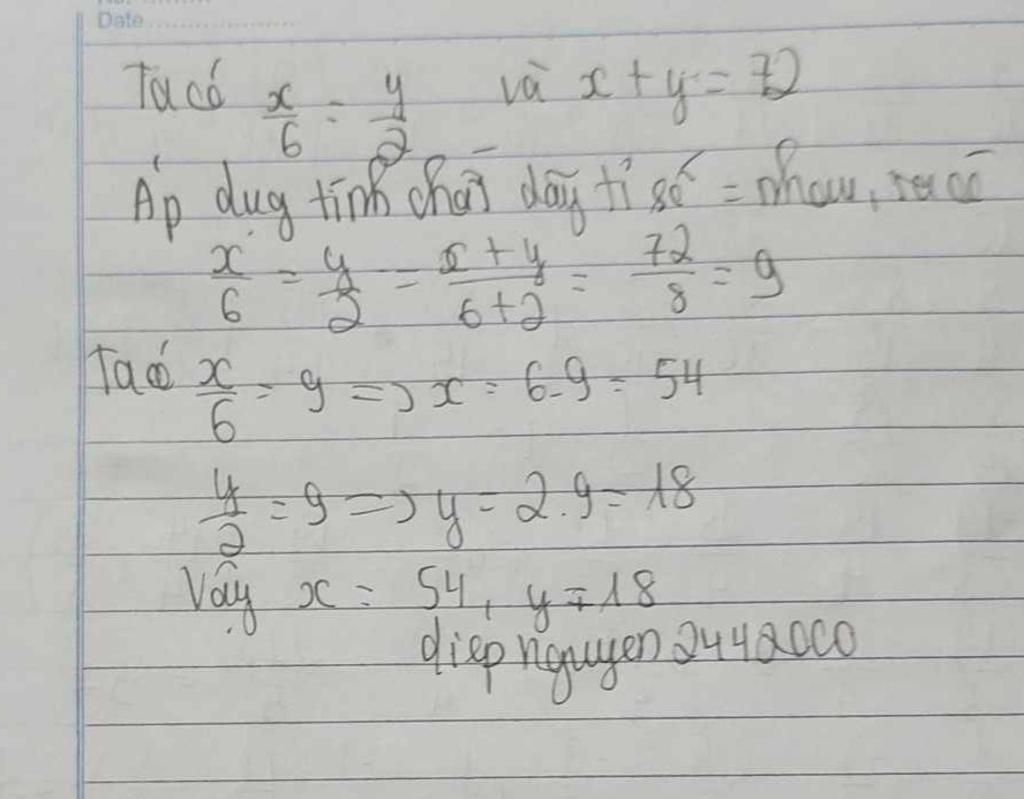 Date
Ta có x/6 = y/2 và x + y = 72
Áp dụg tính chất dãy tỉ số = nhau, ta có
x/6 = y/2 = x + y/6 + 2 = 72/8 = 9
Ta có x/6 = 9 => x = 6.9 = 54
y/2 = 9 => y = 2.9 = 18
Vậy x = 54, y = 18
diepnguyen2442000